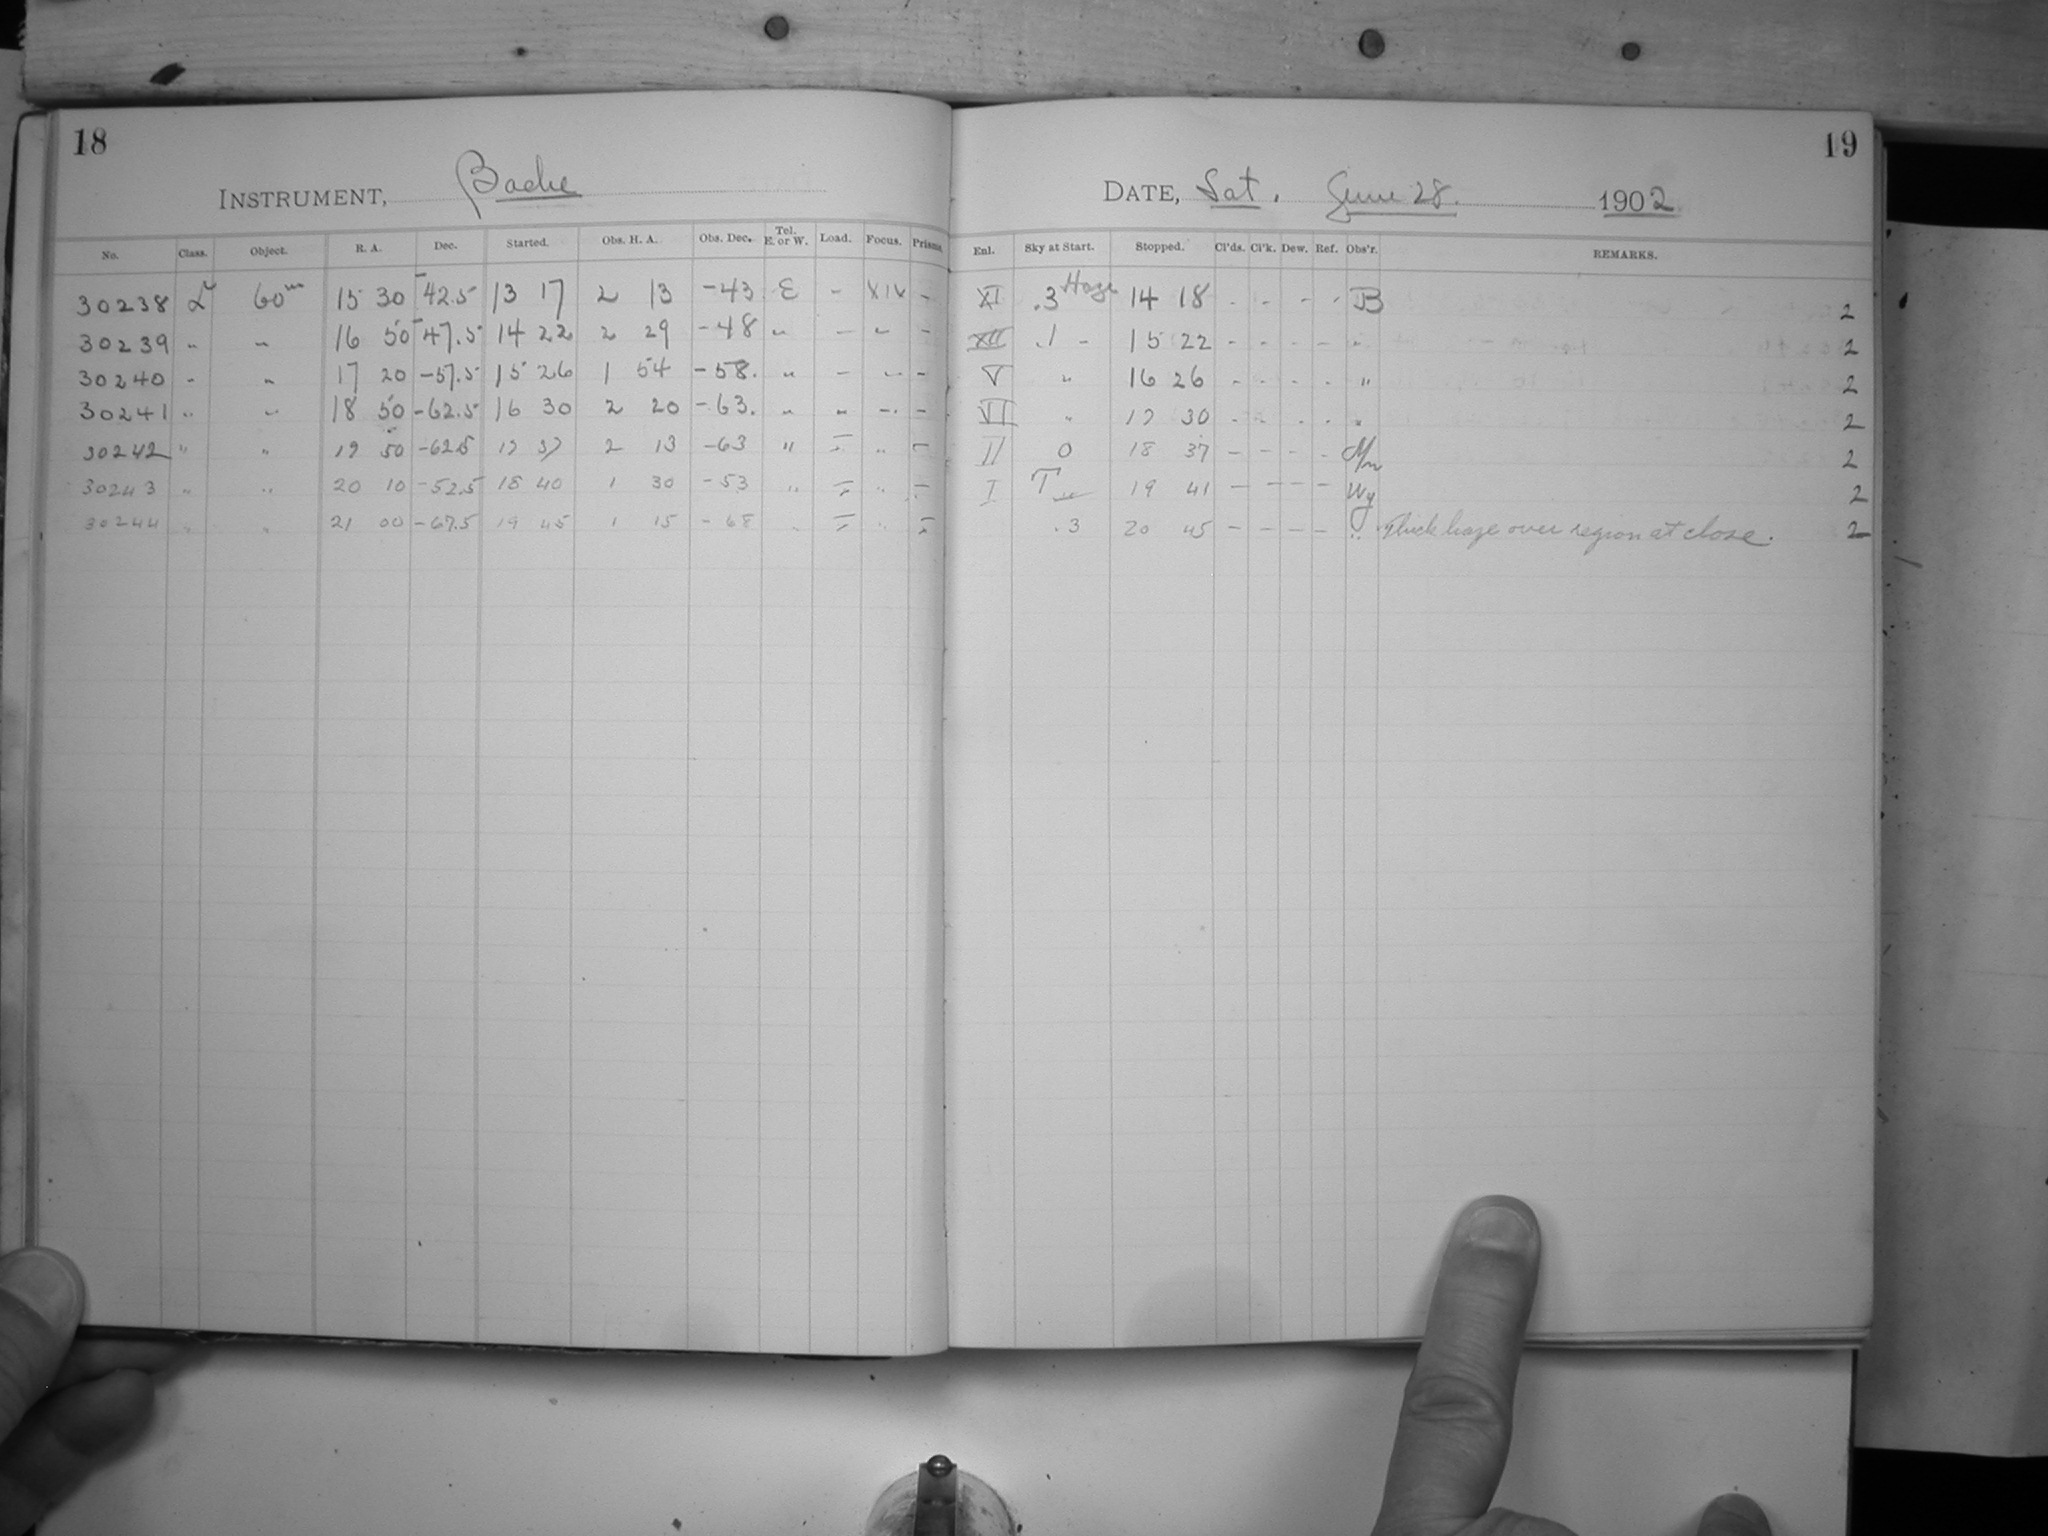 18
INSTRUMENT, Bache
No. Class. Object. R. A. Dec. Started. Obs. H. A. Obs. Dec. Tel. E. or W. Load. Focus. Prisms.
30238 L 60m 15 30 -42.5 13 17 2 13 -43 E - XIV -
30239 " " 16 50 -47.5 14 22 2 29 -48 " - " -
30240 " " 17 20 -57.5 15 26 1 54 -58. " - " -
30241 " " 18 50 -62.5 16 30 2 20 -63. " " - -
30242 " " 19 50 -62.5 17 37 2 13 -63 "
30243 " " 20 10 -52.5 18 40 1 30 -53 "
30244 " " 21 00 -67.5 19 45 1 15 -68 "
19
DATE, Sat. June 28. 1902
Enl. Sky at Start. Stopped. Cl'ds. Cl'k. Dew. Ref. Obs'r. REMARKS.
XI .3 Haze 14 18 - - - - B 2
XII .1 - 15 22 - - - - " 2
V " 16 26 - - - - " 2
VI " 17 30 - - - - " 2
II 0 18 37 - - - - 2
I 19 41 - - - - Wy 2
.3 20 45 - - - - " Thick haze over region at close. 2